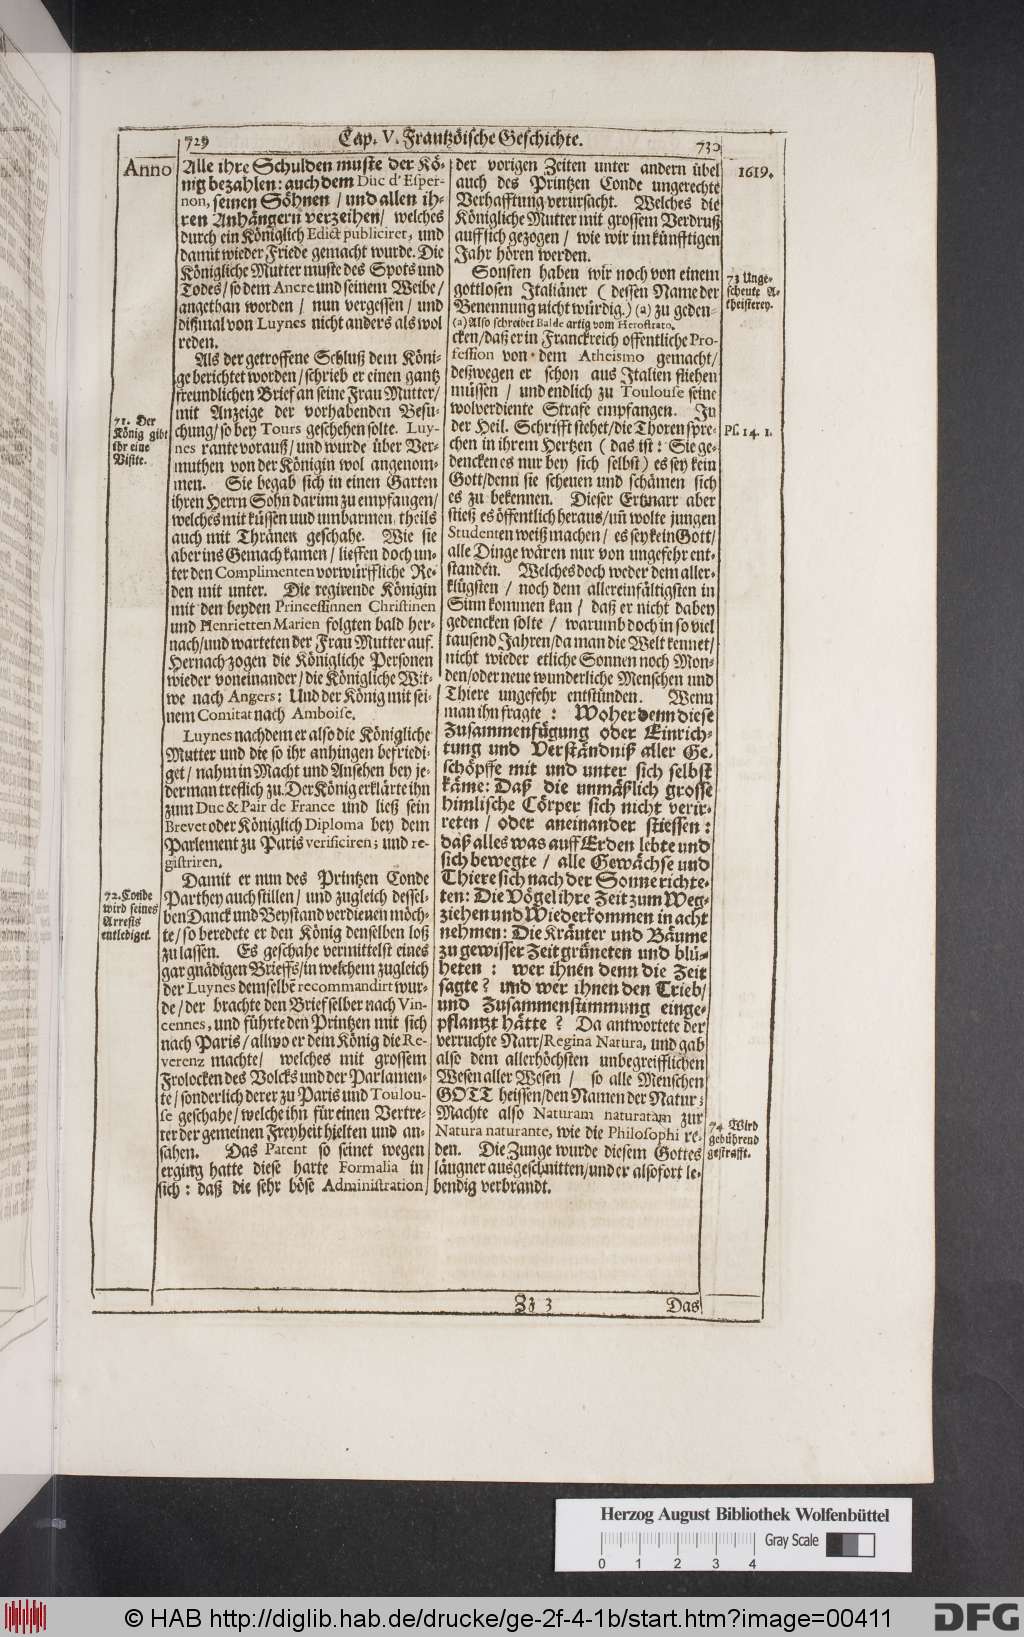 729
Cap. V. Frantzöische Geschichte.
730
Anno
1619.
Alle ihre Schulden muste der Kö-
nig bezahlen: auch dem Duc d'Esper-
non, seinen Söhnen / und allen ih-
ren Anhängern verzeihen / welches
durch ein Königlich Edict publiciret, und
damit wieder Friede gemacht wurde. Die
Königliche Mutter muste des Spots und
Todes / so dem Ancre und seinem Weibe /
angethan worden / nun vergessen / und
dißmal von Luynes nicht anders als wol
reden.
Als der getroffene Schluß dem Köni-
ge berichtet worden / schrieb er einen gantz
freundlichen Brief an seine Frau Mutter /
mit Anzeige der vorhabenden Besu-
chung / so bey Tours geschehen solte. Luy-
nes rante vorauß / und wurde über Ver-
muthen von der Königin wol angenom-
men. Sie begab sich in einen Garten
ihren Herrn Sohn darinn zu empfangen /
welches mit küssen uud umbarmen, theils
auch mit Thränen geschahe. Wie sie
aber ins Gemach kamen / lieffen doch un-
ter den Complimenten vorwürffliche Re-
den mit unter. Die regirende Königin
mit den beyden Princessinnen Christinen
und Henrietten Marien folgten bald her-
nach / und warteten der Frau Mutter auf.
Hernach zogen die Königliche Personen
wieder voneinander / die Königliche Wit-
we nach Angers: Und der König mit sei-
nem Comitat nach Amboise.
Luynes nachdem er also die Königliche
Mutter und die so ihr anhingen befriedi-
get / nahm in Macht und Ansehen bey je-
derman treflich zu. Der König erklärte ihn
zum Duc & Pair de France und ließ sein
Brevet oder Königlich Diploma bey dem
Parlement zu Paris verificiren; und re-
gistriren.
Damit er nun des Printzen Conde
Parthey auch stillen / und zugleich dessel-
ben Danck und Beystand verdienen möch-
te / so beredete er den König denselben loß
zu lassen. Es geschahe vermittelst eines
gar gnädigen Brieffs / in welchem zugleich
der Luynes demselbe recommandirt wur-
de / der brachte den Brief selber nach Vin-
cennes, und führte den Printzen mit sich
nach Paris / allwo er dem König die Re-
verenz machte / welches mit grossem
Frolocken des Volcks und der Parlamen-
te / sonderlich derer zu Paris und Toulou-
se geschahe / welche ihn für einen Vertre-
ter der gemeinen Freyheit hielten und an-
sahen. Das Patent so seinet wegen
erging hatte diese harte Formalia in
sich: daß die sehr böse Administration /
71. Der
König gibt
ihr eine
Visite.
72. Conde
wird seines
Arrests
entlediget.
der vorigen Zeiten unter andern übel
auch des Printzen Conde ungerechte
Verhafftung verursacht. Welches die
Königliche Mutter mit grossem Verdruß
auff sich gezogen / wie wir im künfftigen
Jahr hören werden.
Sonsten haben wir noch von einem
gottlosen Italiäner ( dessen Name der
Benennung nicht würdig.) (a) zu geden-
(a) Also schreibet Balde artig vom Herostrato.
cken / daß er in Franckreich offentliche Pro-
fession von dem Atheismo gemacht /
deßwegen er schon aus Italien fliehen
müssen / und endlich zu Toulouse seine
wolverdiente Strafe empfangen. In
der Heil. Schrifft stehet / die Thoren spre-
chen in ihrem Hertzen ( das ist: Sie ge-
dencken es nur bey sich selbst) es sey kein
Gott / denn sie scheuen und schämen sich
es zu bekennen. Dieser Ertznarr aber
stieß es öffentlich heraus / uñ wolte jungen
Studenten weiß machen / es sey kein Gott /
alle Dinge wären nur von ungefehr ent-
standen. Welches doch weder dem aller-
klügsten / noch dem allereinfältigsten in
Sinn kommen kan / daß er nicht dabey
gedencken solte / warumb doch in so viel
tausend Jahren / da man die Welt kennet /
nicht wieder etliche Sonnen noch Mon-
den / oder neue wunderliche Menschen und
Thiere ungefehr entstünden. Wenn
man ihn fragte: Woher denn diese
Zusammenfügung oder Einrich-
tung und Verständniß aller Ge-
schöpffe mit und unter sich selbst
käme: Daß die unmäßlich grosse
himlische Cörper sich nicht verir-
reten / oder aneinander stiessen:
daß alles was auff Erden lebte und
sich bewegte / alle Gewächse und
Thiere sich nach der Sonne richte-
ten: Die Vögel ihre Zeit zum Weg-
ziehen und Wiederkommen in acht
nehmen: Die Kräuter und Bäume
zu gewisser Zeit grüneten und blü-
heten: wer ihnen denn die Zeit
sagte? und wer ihnen den Trieb /
und Zusammenstimmung einge-
pflantzt hätte? Da antwortete der
verruchte Narr / Regina Natura, und gab
also dem allerhöchsten unbegreifflichen
Wesen aller Wesen / so alle Menschen
GOTT heissen / den Namen der Natur;
Machte also Naturam naturatam zur
Natura naturante, wie die Philosophi re-
den. Die Zunge wurde diesem Gottes
läugner ausgeschnitten / und er alsofort le-
bendig verbrandt.
73 Unge-
scheute A-
theisterey.
Ps. 14. 1.
74 Wird
gebührend
gestrafft.
Zz 3
Das
Herzog August Bibliothek Wolfenbüttel
Gray Scale
0 1 2 3 4
© HAB http://diglib.hab.de/drucke/ge-2f-4-1b/start.htm?image=00411
DFG